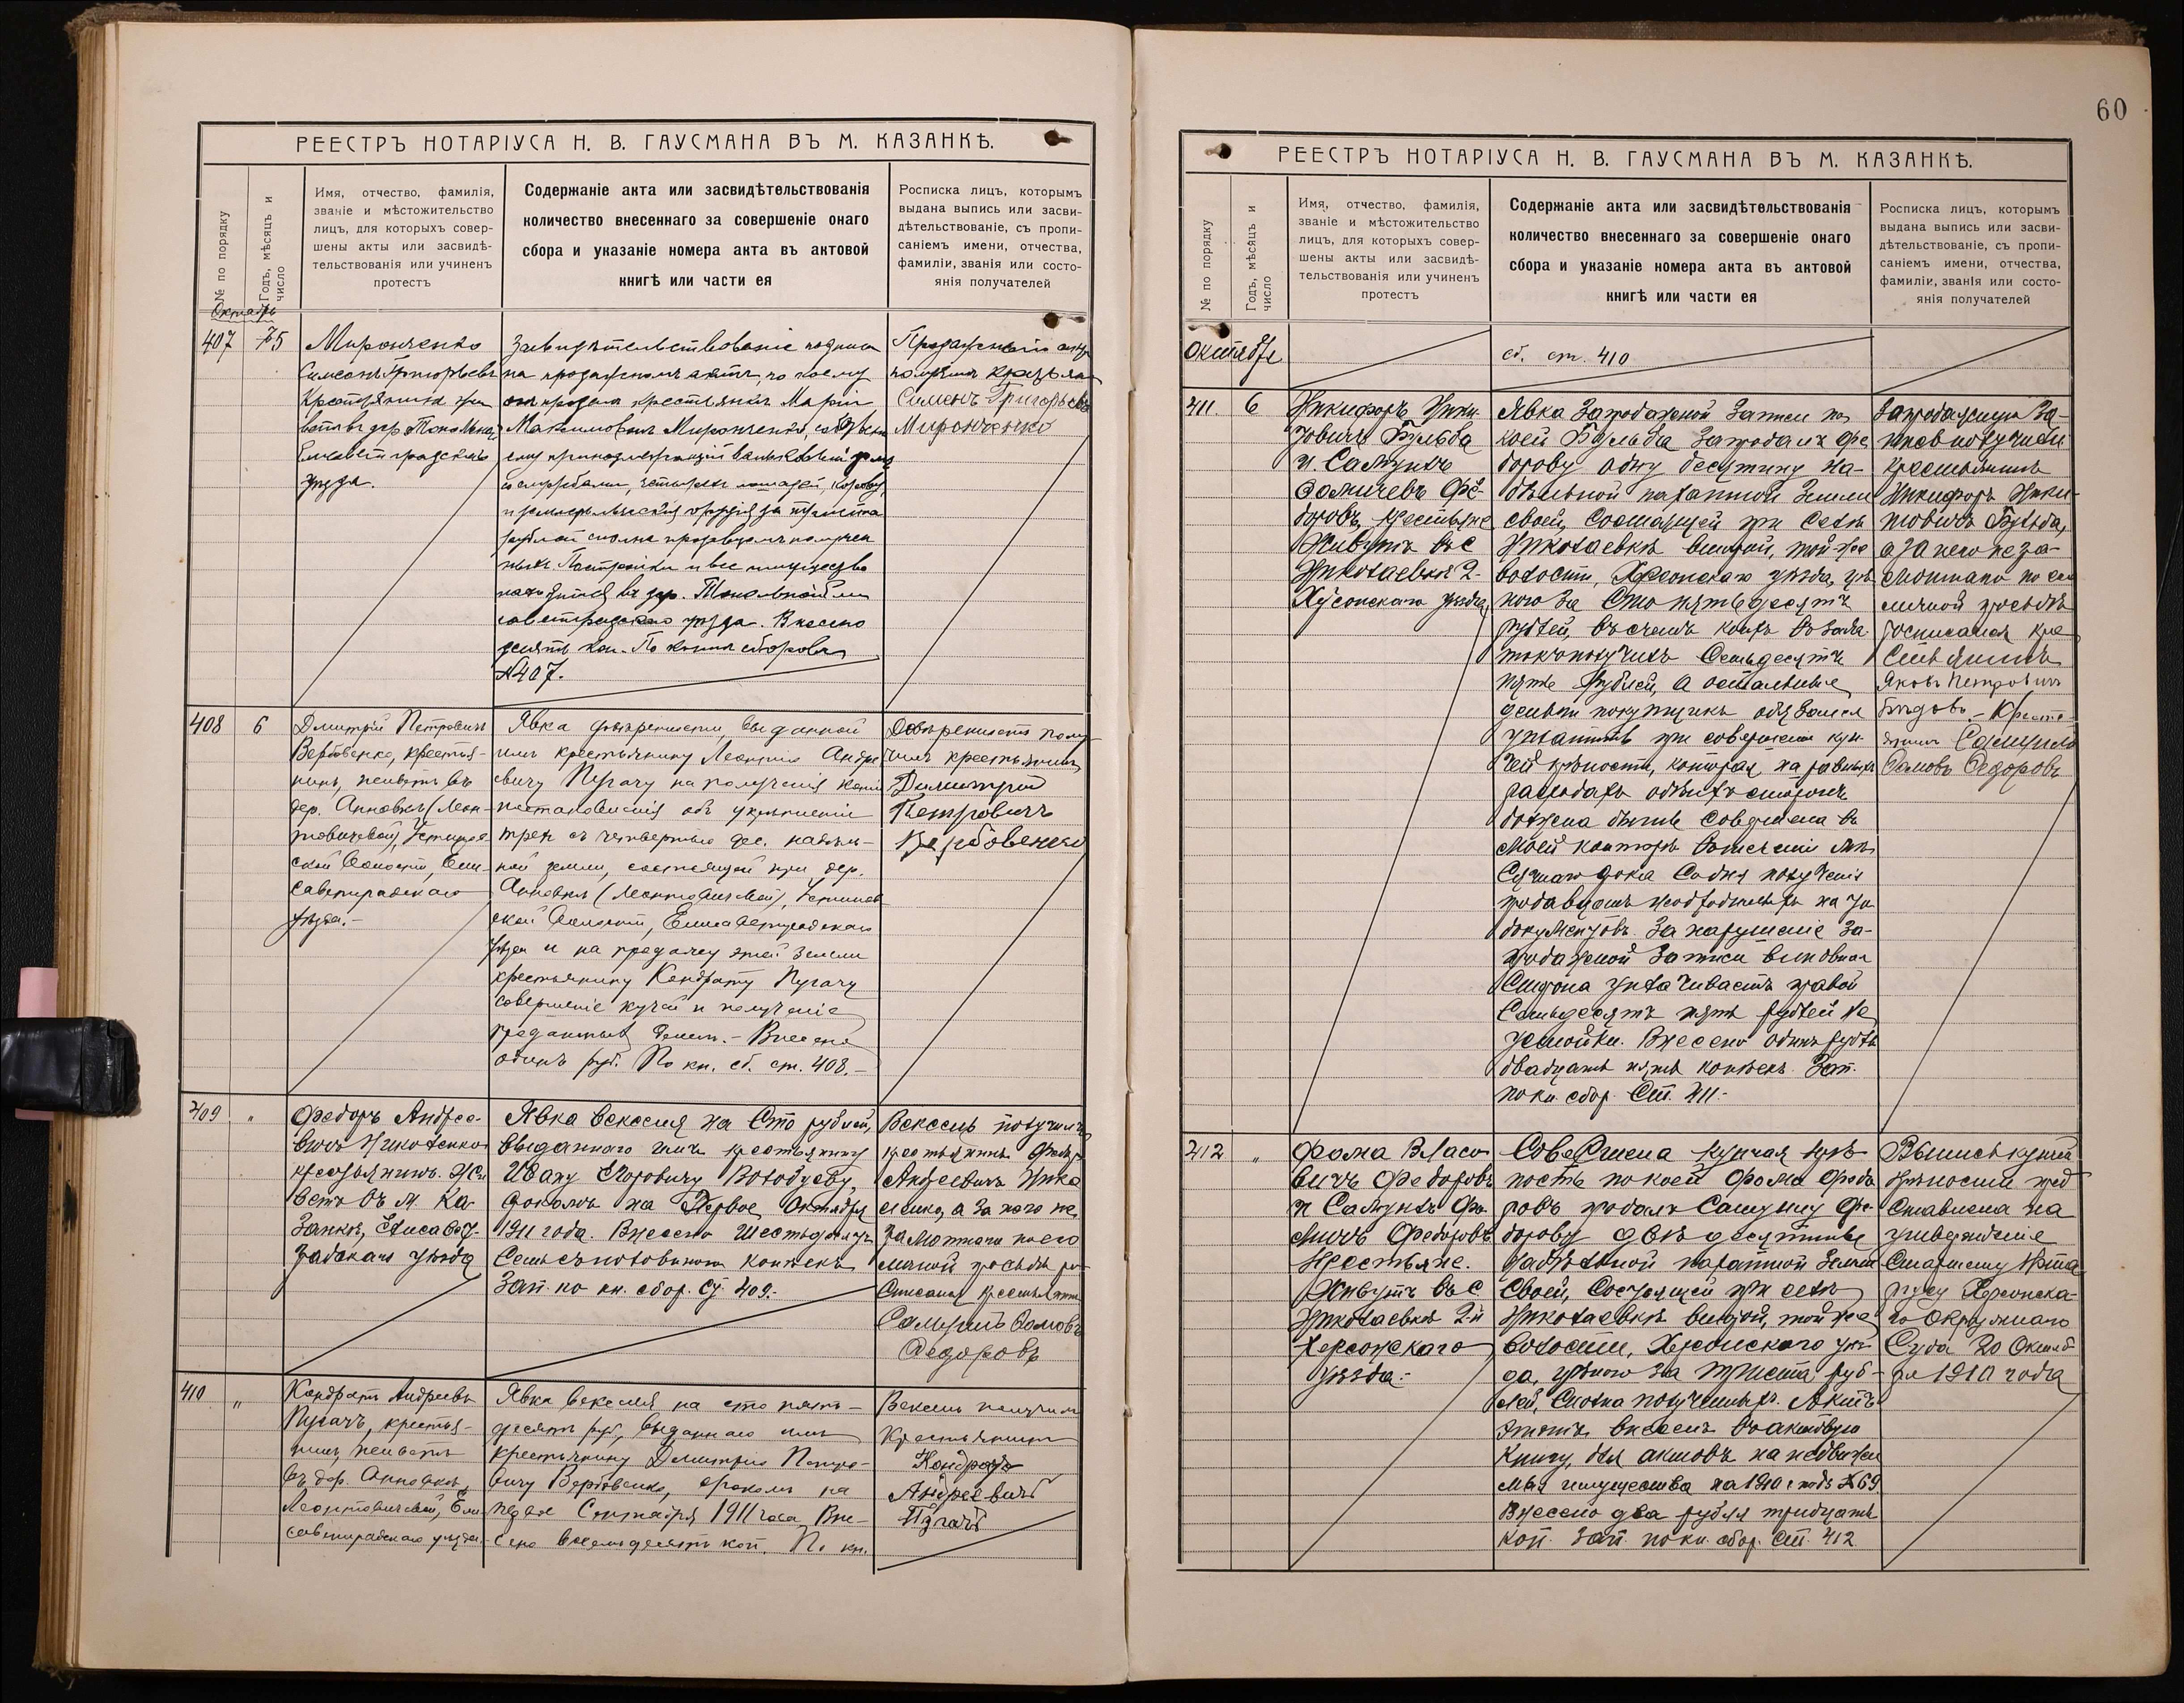 РЕЕСТРЪ НОТАРІУСА Н. В. ГАУСМАНА ВЪ М. КАЗАНКѢ.
№ по порядку
Годъ, мѣсяцъ и число
Имя, отчество, фамилія,
званіе и мѣстожительство
лицъ, для которыхъ совер-
шены акты или засвидѣ-
тельствованія или учиненъ
протестъ
Содержаніе акта или засвидѣтельствованія
количество внесеннаго за совершеніе онаго
сбора и указаніе номера акта въ актовой
книгѣ или части ея
Росписка лицъ, которымъ
выдана выпись или засви-
дѣтельствованіе, съ пропи-
саніемъ имени, отчества,
фамиліи, званія или состо-
янія получателей
Октябрь
407 5
Миронченко
Симеонъ Григорьевъ
уѣзда.
Засвидѣтельствованіе подписи
на продажномъ актѣ, по коему
онъ продалъ крестьянкѣ Маріи
Максимовнѣ Миронченко,
рублей сполна продавцомъ получен
ныхъ. Постройки и все имущество
уѣзда. Внесено
десять коп. По книгѣ сборовъ
№407.
Продажный актъ
получилъ крестьян
Сименъ Григорьевъ
Миронченко
408 6
Дмитрій Петровичъ
Вербовенко, крестья-
нинъ, живетъ въ
дер. Анновкѣ (Леон-
товичевой),
ской волости, Ели-
саветградскаго
уѣзда.-
Явка довѣренности, выданной
имъ крестьянину Леонтію Андре
евичу Пугачу на полученія копіи
постановленія объ укрѣпленіи
трехъ съ четвертью дес. надѣль-
ной земли, состоящей при дер.
Анновкѣ (Леонтовичевой),
ской волости, Елисаветградскаго
уѣзда и на продажу этой земли
крестьянину Кондрату Пугачу
совершеніе купчей и полученіе
денегъ.- Внесено
одинъ руб. По кн. сб. ст. 408.-
Довѣренность полу
чилъ крестьянинъ
Димитрій
Петровичъ
Вербовенко
409 "
Федоръ Андрее-
вичъ Николенко
крестьянинъ. Жи
ветъ въ м. Ка-
занкѣ, Елисавет-
градскаго уѣзда
Явка векселя на сто рублей,
выданнаго имъ крестьянину
Ивану
срокомъ на Первое Октября
1911 года. Внесено шестьдесятъ
семь съ половиною копѣекъ
Зап. по кн. сбор. ст. 409.-
Вексель получилъ
крестьянинъ Федоръ
Андреевичъ Нико
ленко, а за него не
грамотнаго по его
личной просьбѣ ро-
списался крестьянинъ
Самуилъ Фомовъ
Федоровъ
410 "
Кондратъ Андреевъ
Пугачъ, крестья-
нинъ, живетъ
въ дер. Анновкѣ,
Леонтовичевой, Ели
саветградскаго уѣзда.
Явка векселя на сто пять-
десятъ руб., выданнаго имъ
крестьянину Дмитрію Петро-
вичу Вербовенко, срокомъ на
первое Сентября 1911 года, Вне-
сено восемьдесятъ коп. По кн.
Вексель получилъ
Крестьянинъ
Кондратъ
Андреевичъ
Пугачъ
60
РЕЕСТРЪ НОТАРІУСА Н. В. ГАУСМАНА ВЪ М. КАЗАНКѢ.
№ по порядку
Годъ, мѣсяцъ и число
Имя, отчество, фамилія,
званіе и мѣстожительство
лицъ, для которыхъ совер-
шены акты или засвидѣ-
тельствованія или учиненъ
протестъ
Содержаніе акта или засвидѣтельствованія
количество внесеннаго за совершеніе онаго
сбора и указаніе номера акта въ актовой
книгѣ или части ея
Росписка лицъ, которымъ
выдана выпись или засви-
дѣтельствованіе, съ пропи-
саніемъ имени, отчества,
фамиліи, званія или состо-
янія получателей
Октября
сб. ст. 410
411 6
Никифоръ Ники-
товичъ Бульба
и Самуилъ
Фомичевъ Фе-
доровъ, крестьяне
Живутъ въ с
Николаевкѣ 2-
Херсонскаго уѣзда
Явка запродажной записи по
коей Бульба запродалъ Фе
дорову одну десятину на-
дѣльной пахатной земли
своей, состоящей при селѣ
Николаевкѣ второй, той-же
волости, Херсонскаго уѣзда, цѣ
ною за Сто пятьдесятъ
рублей, въ счетъ коихъ въ зада
токъ получилъ Семьдесятъ
пять рублей, а остальные
деньги покупщикъ обязался
уплатить при совершеніи куп-
чей крѣпости, которая на равныхъ
расходахъ обѣихъ сторонъ
должна быть совершена въ
моей конторѣ въ теченіи мѣ-
сячнаго срока со дня полученія
продавцомъ
документовъ. За нарушеніе за-
продажной записи виновная
Сторона уплачиваетъ правой
Семьдесятъ пять рублей не
устойки. Внесено одинъ рубль
двадцать пять копѣекъ. Зап.
по кн. сбор. Ст. 411.-
Запродажную за-
пись получили
крестьянинъ
Никифоръ Ники-
товичъ Бульба,
а за него негра-
мотнаго по его
личной просьбѣ
росписался кре
стьянинъ
Яковъ Петровичъ
Крестья-
нинъ Самуилъ
Фомовъ Федоровъ
412 "
Фома Власо
вичъ Федоровъ
и Самуилъ Фо-
мичъ Федоровъ
Крестьяне.
Живутъ въ с
Николаевкѣ 2-й
Херсонскаго
уѣзда.-
Совершена купчая крѣ
пость по коей Фома Федо
ровъ продалъ Самуилу Фе-
дорову двѣ десятины
надѣльной пахатной земли
своей, состоящей при селѣ
Николаевкѣ второй, той же
волости, Херсонскаго уѣз
да, цѣною за триста руб-
лей, сполна полученныхъ. Актъ
этотъ внесенъ въ актовую
книгу, для актовъ на недвижи
мыя имущества на 1910 г. подъ №69
Внесено два рубля тридцать
коп. Зап. по кн. сбор. ст. 412
Выпись купчей
крѣпости пред
ставлена на
утвержденіе
Старшему Нота
ріусу Херсонска-
го Окружнаго
Суда 20 Октяб
ря 1910 года